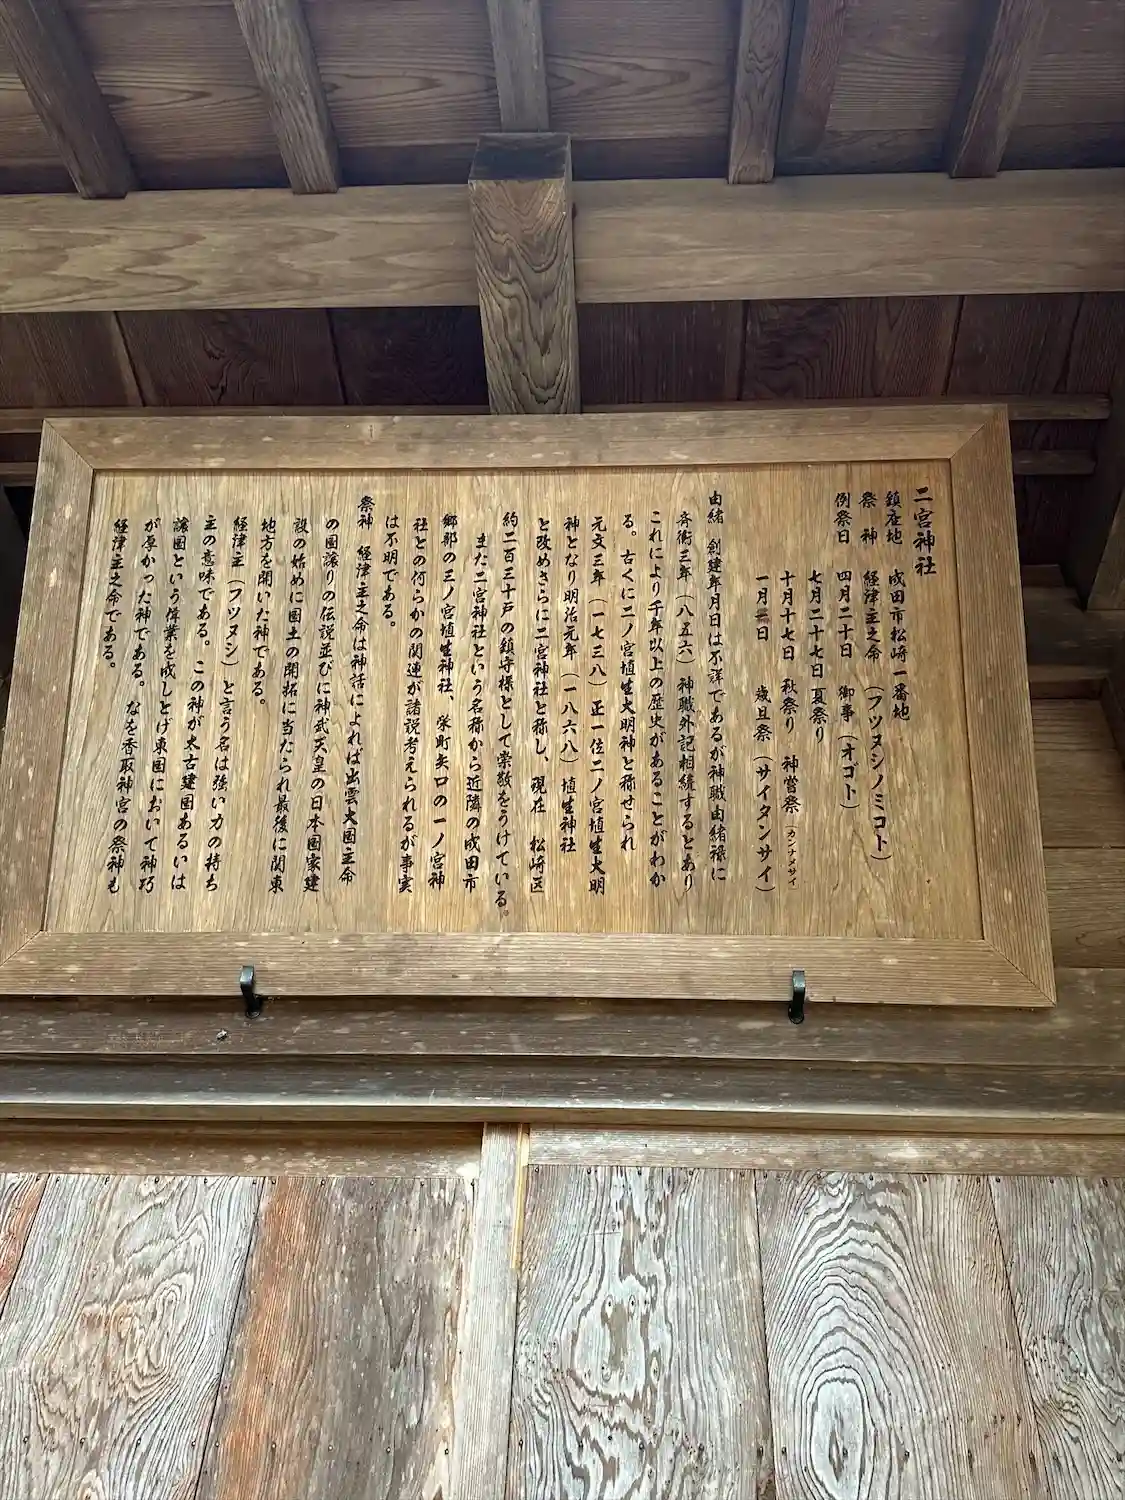 二宮神社
鎮座地　成田市松崎一番地
祭　神　経津主之命　(フツヌシノミコト)
例祭日　四月二十日　御事(オゴト)
七月二十七日　夏祭り
十月十七日　秋祭り　神嘗祭(カンナメサイ)
一月　日　歳旦祭(サイタンサイ)
由緒　創建年月日は不詳であるが神職由緒禄に
斉衡三年(八五六)神職外記相続するとあり
これにより千年以上の歴史があることがわか
る。古くに二ノ宮埴生大明神と称せられ
元文三年(一七三八)正一位二ノ宮埴生大明
神となり明治元年(一八六八)埴生神社
と改めさらに二宮神社と称し、現在　松崎区
約二百三十戸の鎮守様として崇敬をうけている。
また二宮神社という名称から近隣の成田市
郷部の三ノ宮埴生神社、栄町矢口の一ノ宮神
社との何らかの関連が諸説考えられるが事実
は不明である。
祭神　経津主之命は神話によれば出雲大国主命
の国譲りの伝説並びに神武天皇の日本国家建
設の始めに国土の開拓に当たられ最後に関東
地方を開いた神である。
経津主(フツヌシ)と言う名は強い力の持ち
主の意味である。この神が太古建国あるいは
譲国という偉業を成しとげ東国において神巧
が厚かった神である。なを香取神宮の祭神も
経津主之命である。